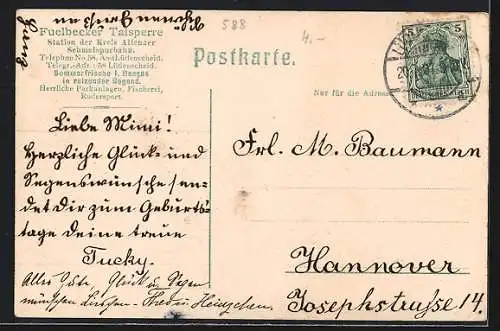 Fuelbecker Talsperre
Station der Kreis Altenaer
Schmalspurbahn.
Telephon No 58, Amt Lüdenscheid.
Telegr.-Adr.: 58 Lüdenscheid.
Sommerfrische I. Ranges
in reizender Gegend.
Herrliche Parkanlagen, Fischerei,
Rudersport.
588
4.-
Postkarte.
Nur für die Adresse
5
Liebe Mimi!
Herzliche Glück- und
Segenswünsche sen-
det Dir zum Geburts-
tage deine treue
Tucky.
Alles Gute, Glück u. Segen
wünschen
Frl. M. Baumann
Hannover
Josephstrasse 14.